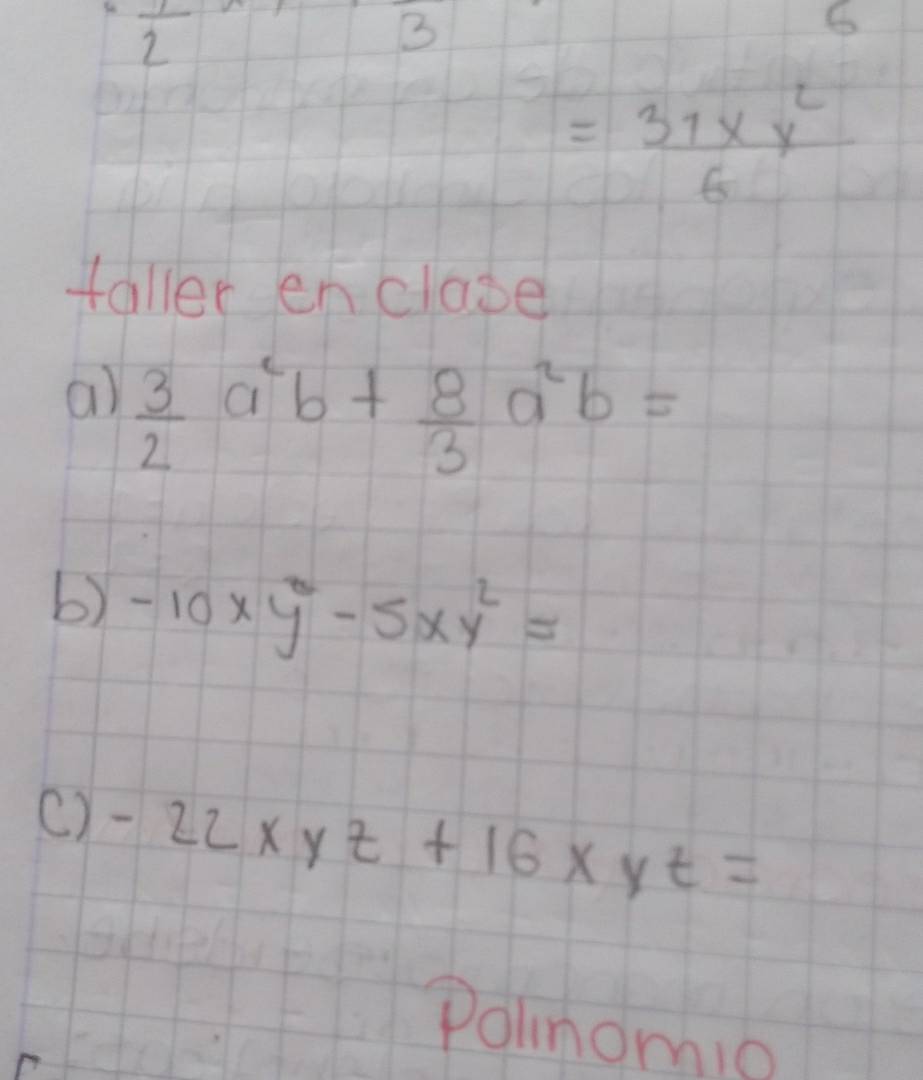 2 3 6
= 31xy²
6
taller en clase
a) 3/2 a²b + 8/3 a²b =
b) -10xy² - 5xy² =
c) - 22xyz + 16xyz =
Polinomio